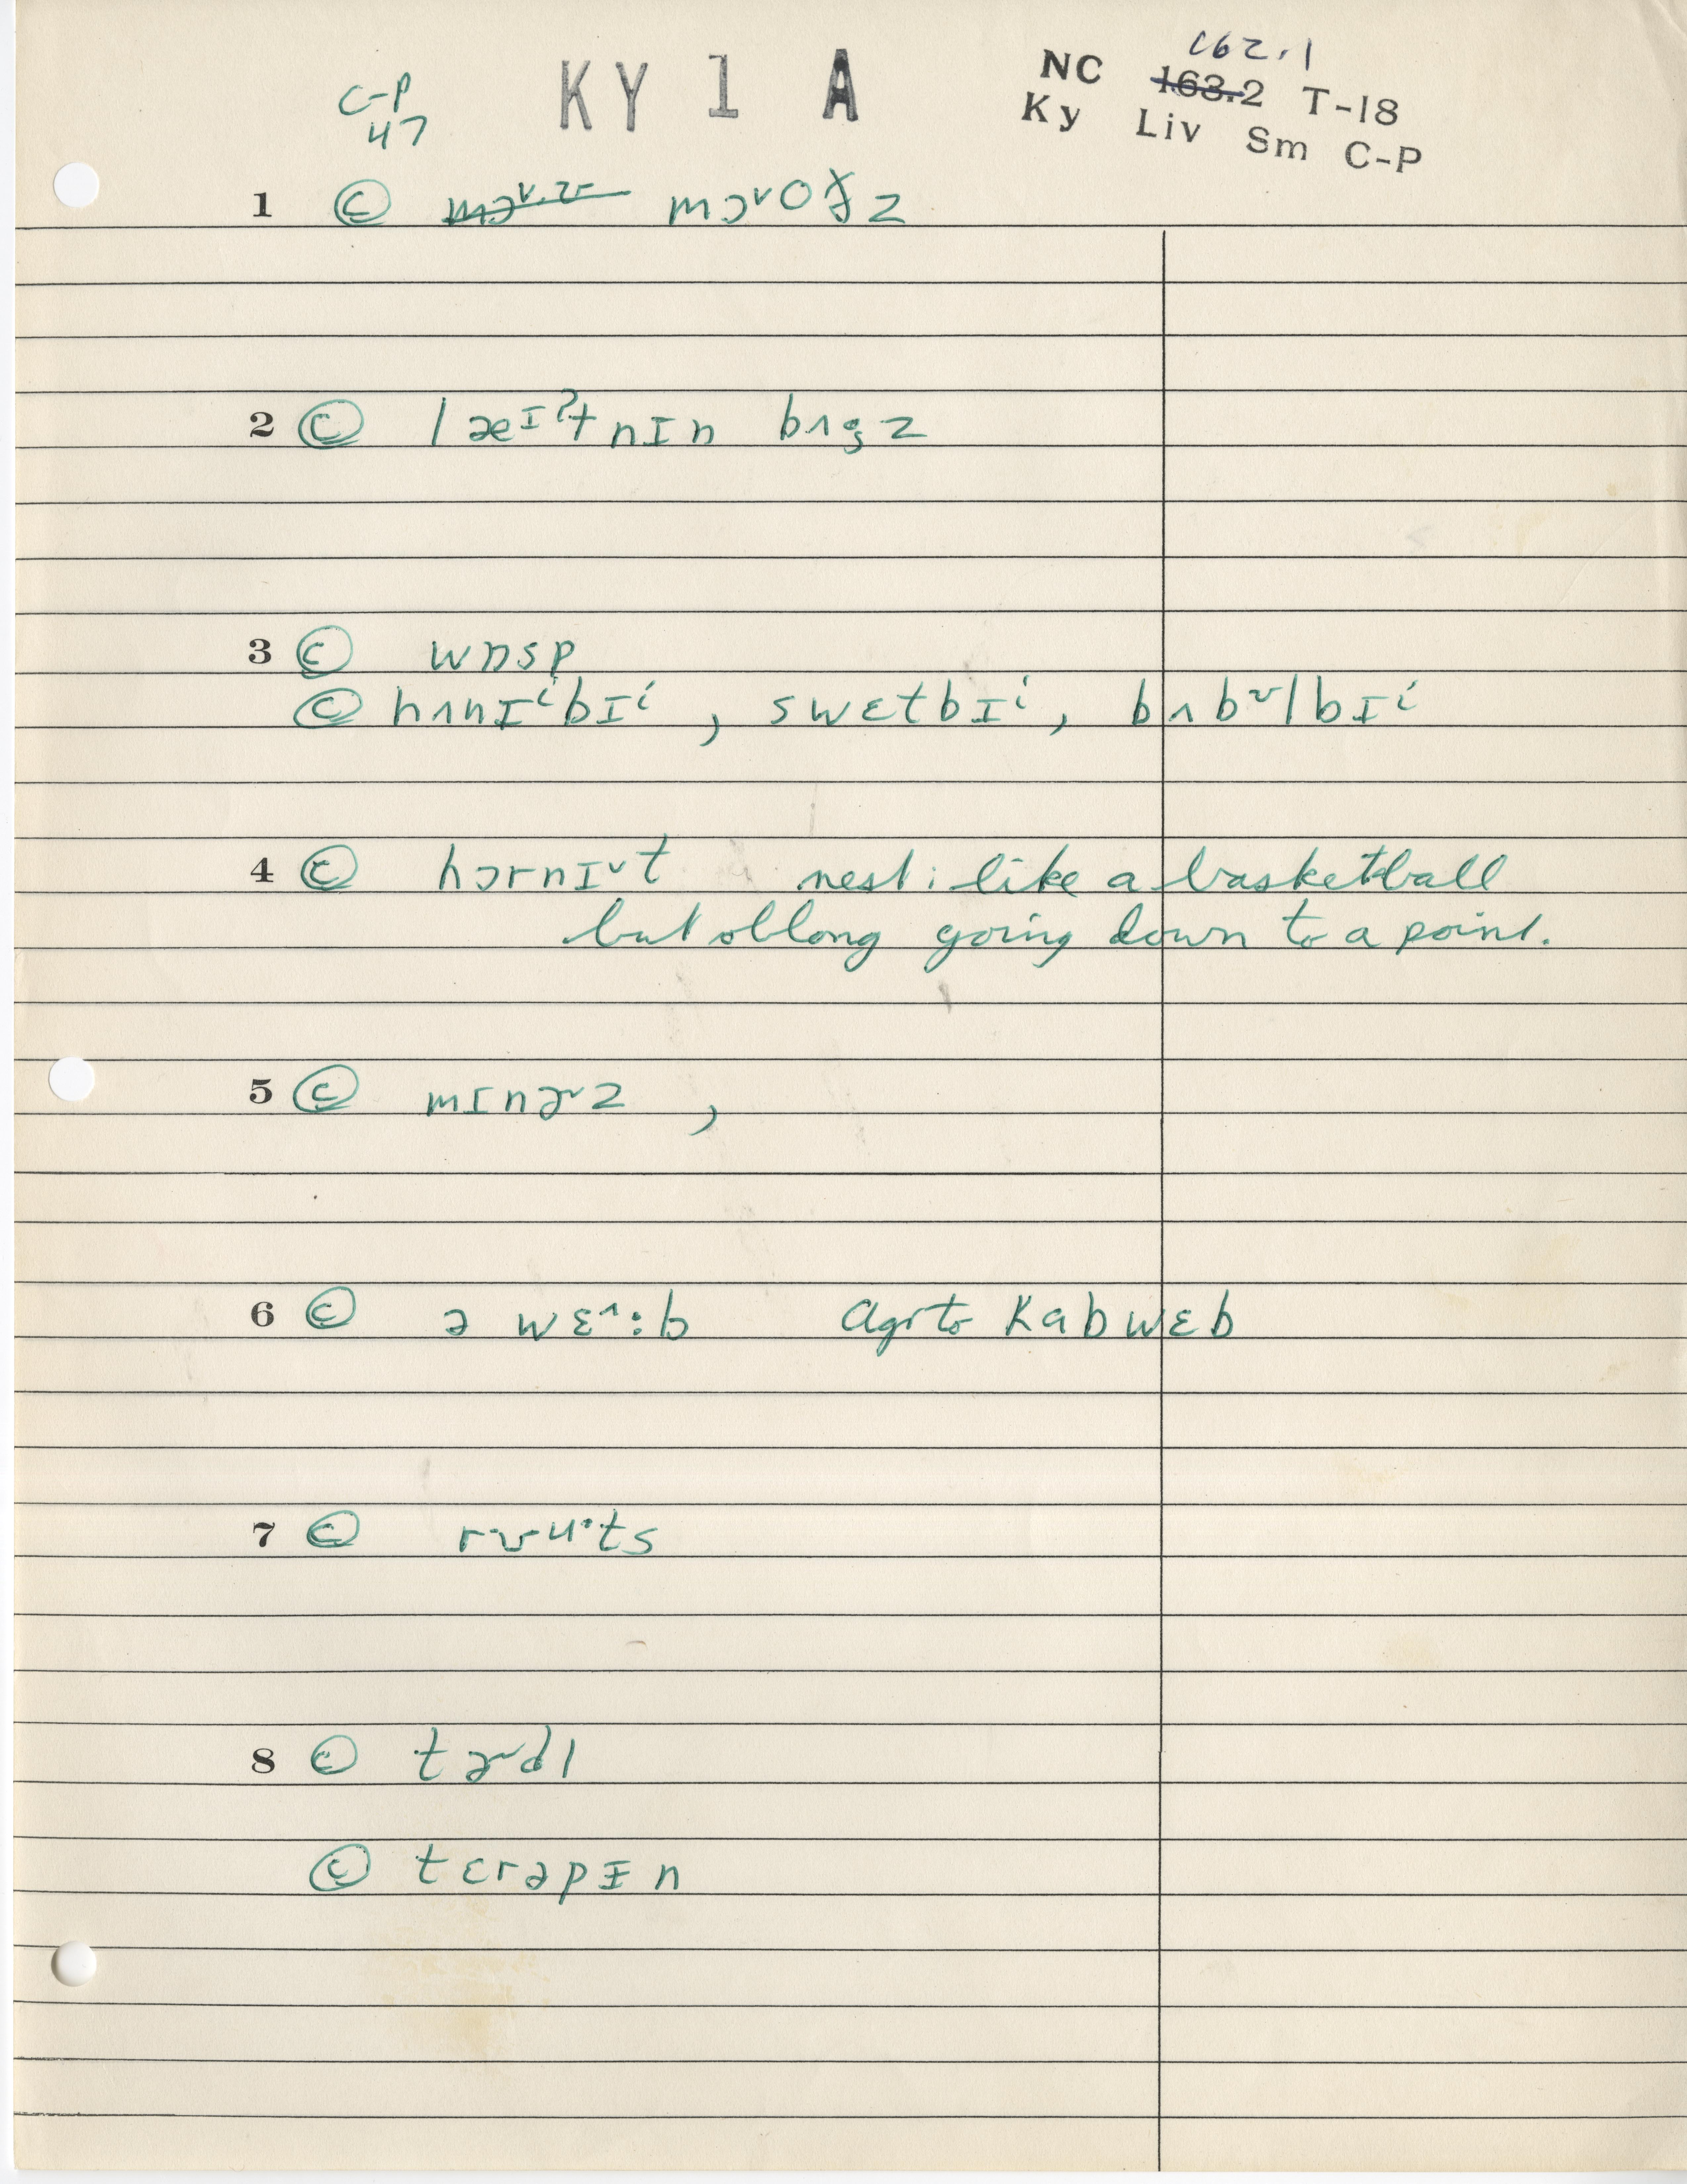 C-P
47
KY 1 A
c62.1
NC 163.2 T-18
Ky Liv Sm C-P
1 ⓒ mɔ˅oðz
2 ⓒ læᶦˀtnɪn bʌgz
3 ⓒ wɒsp
ⓒ hʌnɪⁱbɪⁱ, swɛtbɪⁱ, bʌbɚlbɪⁱ
4 ⓒ hɔrnɪ˅t nest: like a basketball
but oblong going down to a point.
5 ⓒ mɪnɚz,
6 ⓒ ə wɛ^:b agrto kabwɛb
7 ⓒ rʊuˑts
8 ⓒ tɚdl
ⓒ tɛrəpɨn